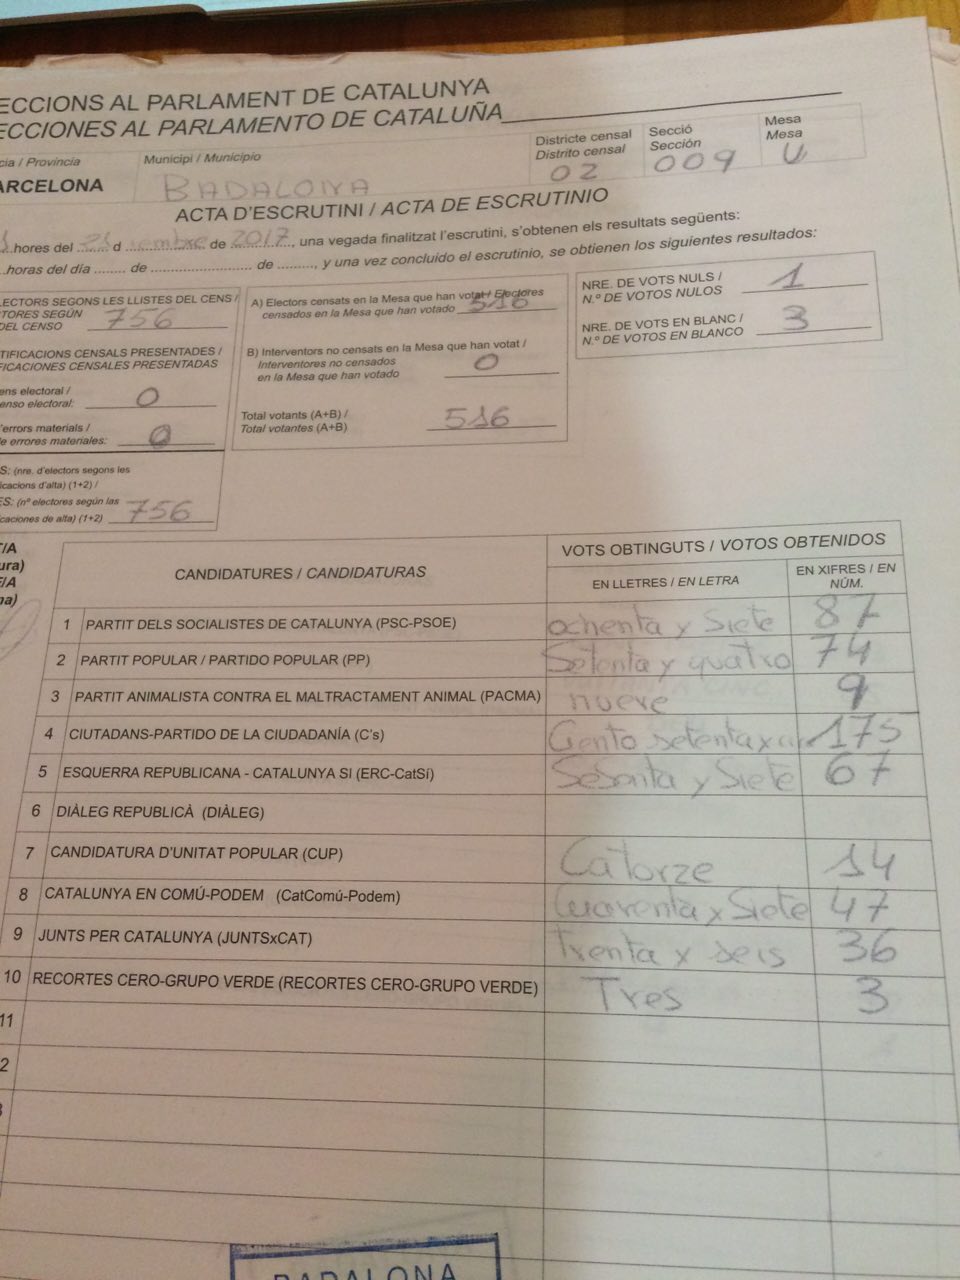 ECCIONS AL PARLAMENT DE CATALUNYA
ECCIONES AL PARLAMENTO DE CATALUÑA
cia / Provincia
ARCELONA
Municipi / Municipio
BADALONA
Districte censal
Distrito censal
02
Secció
Sección
009
Mesa
Mesa
U
ACTA D'ESCRUTINI / ACTA DE ESCRUTINIO
hores del 21 d de 2017, una vegada finalitzat l'escrutini, s'obtenen els resultats següents:
horas del día ....... de ....................... de ........., y una vez concluido el escrutinio, se obtienen los siguientes resultados:
LECTORS SEGONS LES LLISTES DEL CENS /
TORES SEGÚN
DEL CENSO 756
TIFICACIONS CENSALS PRESENTADES /
FICACIONES CENSALES PRESENTADAS
ens electoral /
enso electoral: 0
'errors materials /
e errores materiales: 0
S: (nre. d'electors segons les
icacions d'alta) (1+2) /
ES: (nº electores según las
icaciones de alta) (1+2) 756
A) Electors censats en la Mesa que han votat / Electores
censados en la Mesa que han votado 516
B) Interventors no censats en la Mesa que han votat /
Interventores no censados
en la Mesa que han votado 0
Total votants (A+B) /
Total votantes (A+B) 516
NRE. DE VOTS NULS /
N.º DE VOTOS NULOS 1
NRE. DE VOTS EN BLANC /
N.º DE VOTOS EN BLANCO 3
T/A
ura)
/A
na)
CANDIDATURES / CANDIDATURAS
VOTS OBTINGUTS / VOTOS OBTENIDOS
EN LLETRES / EN LETRA
EN XIFRES / EN
NÚM.
1 PARTIT DELS SOCIALISTES DE CATALUNYA (PSC-PSOE) ochenta y Siete 87
2 PARTIT POPULAR / PARTIDO POPULAR (PP) Setenta y quatro 74
3 PARTIT ANIMALISTA CONTRA EL MALTRACTAMENT ANIMAL (PACMA) nueve 9
4 CIUTADANS-PARTIDO DE LA CIUDADANÍA (C's) Ciento setenta y 175
5 ESQUERRA REPUBLICANA - CATALUNYA SI (ERC-CatSí) Sesenta y Siete 67
6 DIÀLEG REPUBLICÀ (DIÀLEG)
7 CANDIDATURA D'UNITAT POPULAR (CUP) Catorze 14
8 CATALUNYA EN COMÚ-PODEM (CatComú-Podem) Cuarenta y Siete 47
9 JUNTS PER CATALUNYA (JUNTSxCAT) trenta y seis 36
10 RECORTES CERO-GRUPO VERDE (RECORTES CERO-GRUPO VERDE) Tres 3
11
2
3
BADALONA